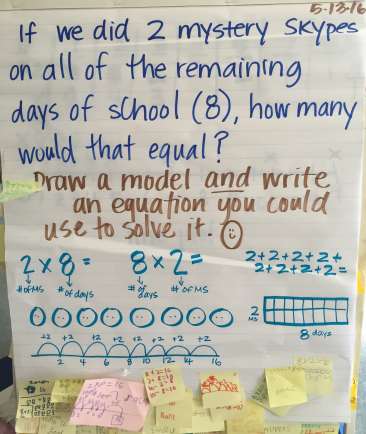 5-13-16
If we did 2 mystery Skypes
on all of the remaining
days of school (8), how many
would that equal?
Draw a model and write
an equation you could
use to solve it.
2 x 8 =
# of MS # of days
8 x 2 =
# of days # of MS
2+2+2+2+
2+2+2+2=
2
MS
8 days
+2 +2 +2 +2 +2 +2 +2 +2
2 4 6 8 10 12 14 16